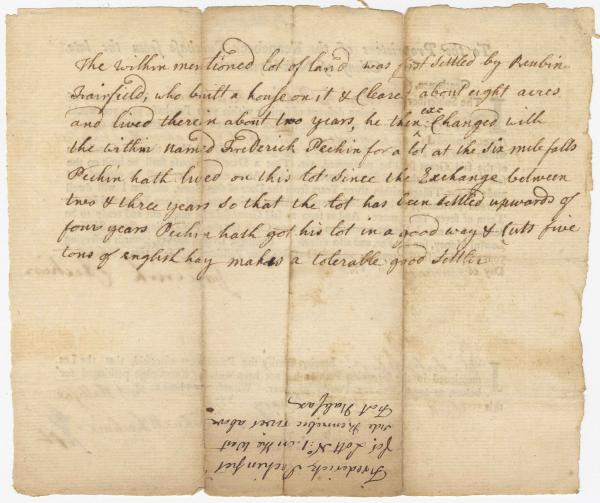 The within mentioned lot of land was first settled by Reubin
Fairfield, who built a house on it & Cleared about eight acres
and lived therein about two years, he then exchanged with
the within named Frederick Pechin for a lot at the six mile falls
Pechin hath lived on this lot since the Exchange between
two & three years so that the lot has been settled upwards of
four years Pechin hath got his lot in a good way & Cuts five
tons of english hay makes a tolerable good settler
Frederick Pechin
Lott No. 1. on the West
side Kennebec river above
Fort Halifax